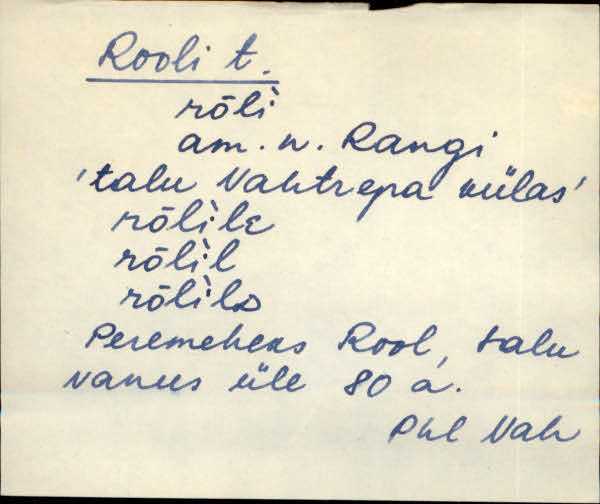 Rooli t.
rōlì
am. n. Rangi
'talu Vahtrepa külas'
rōlìlᴇ
rōlìl
rōlìlᴅ
Peremeheks Rool, talu
vanus üle 80 a.
Phl Vah